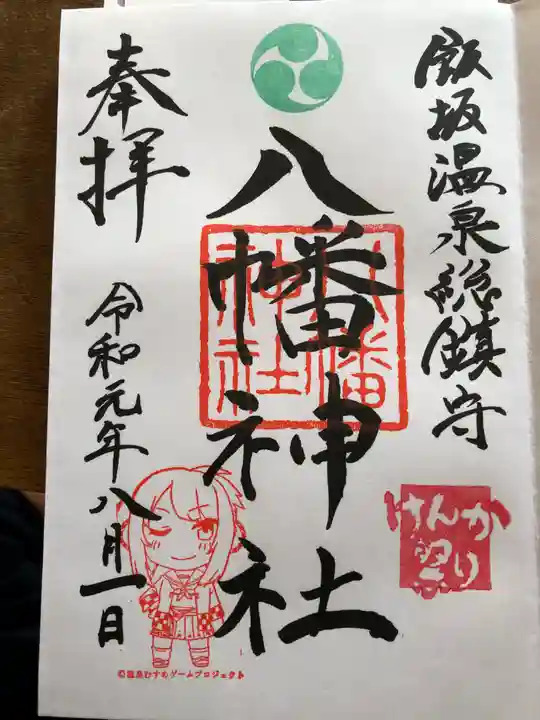 飯坂温泉総鎮守
けんか
祭り
八幡神社
八幡
神社
奉拝
令和元年八月一日
©温泉むすめゲームプロジェクト